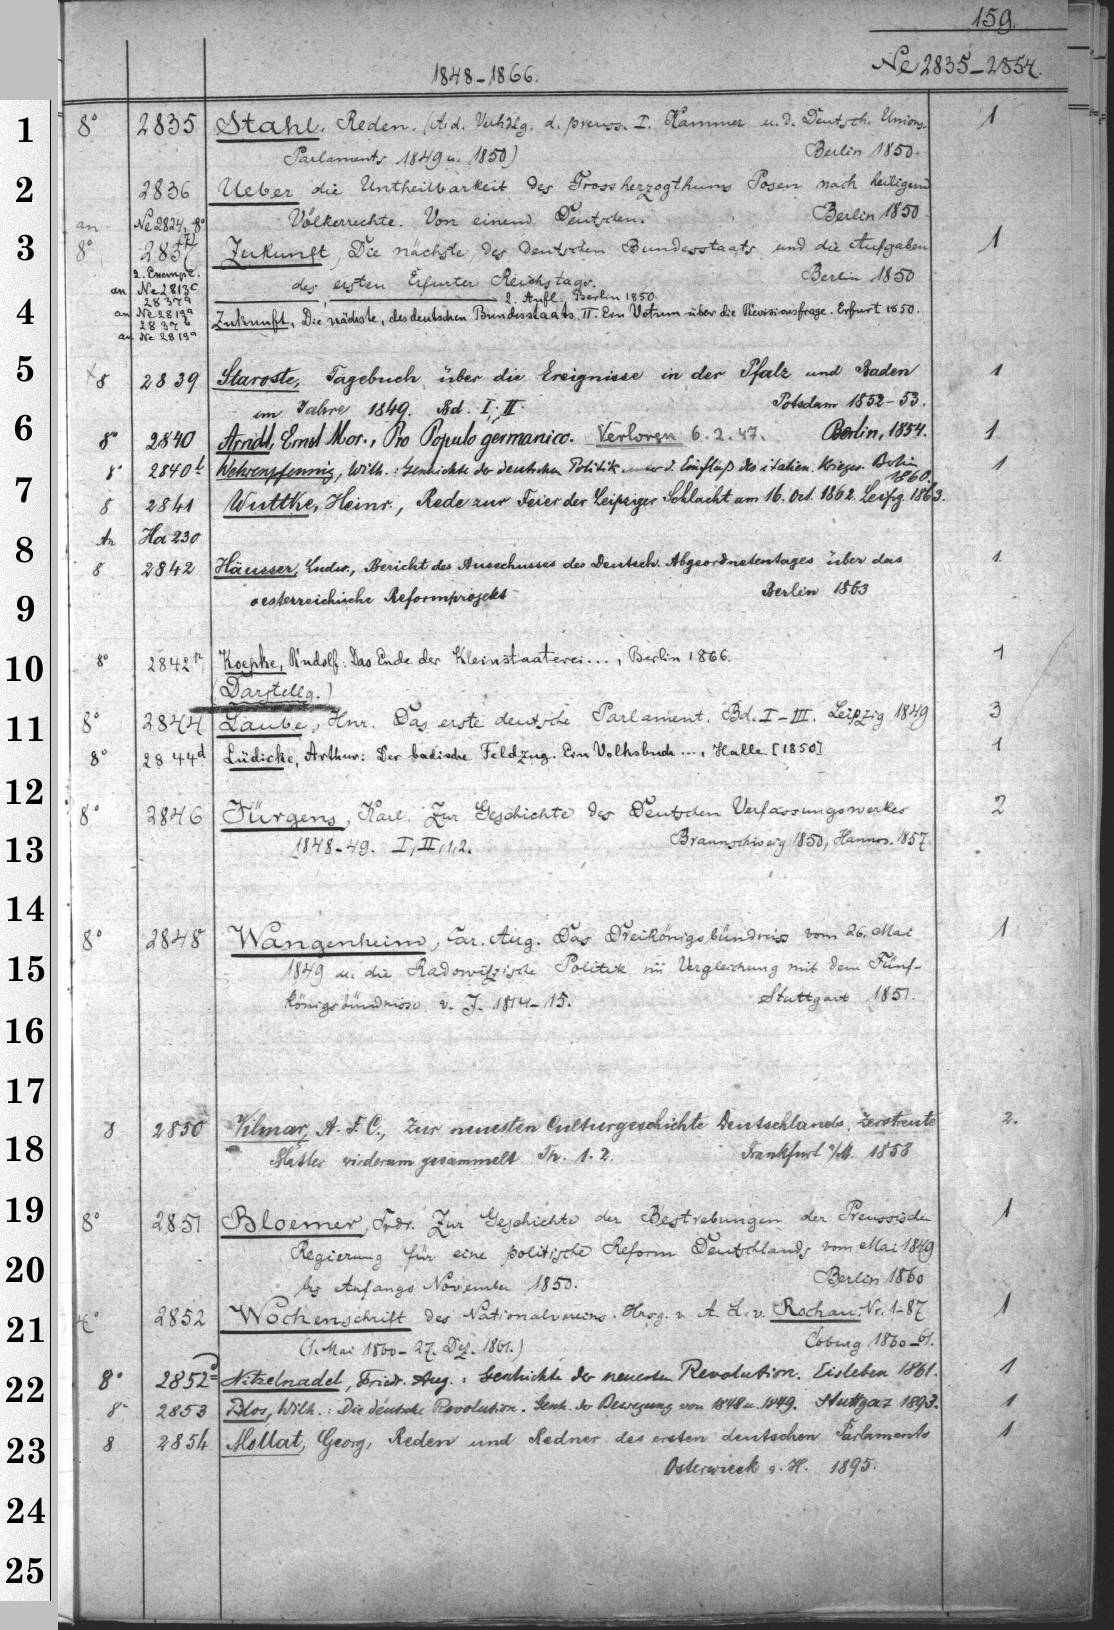 159.
1848-1866.
Ne 2835-2854.
1 8° 2835 Stahl. Reden. (A. d. Verhdlg. d. preuss. I. Kammer u. d. Deutsch. Unions-
Parlaments 1849 u. 1850) Berlin 1850. 1
2 2836 Ueber die Untheilbarkeit des Grossherzogthums Posen nach heiligem
an Ne 2824, 8° Völkerrechte. Von einem Deutschen. Berlin 1850
3 8° 2837 Zukunft, Die nächste, des deutschen Bundesstaats und die Aufgaben 1
2. Exempl. des ersten Erfurter Reichstags. Berlin 1850
an Ne 2813c
2837a 2. Aufl. Berlin 1850.
4 an Ne 2819a Zukunft, Die nächste, des deutschen Bundesstaats. II. Ein Votum über die Revisionsfrage. Erfurt 1850.
2837b
an Ne 2819a
5 8 2839 Staroste, Tagebuch über die Ereignisse in der Pfalz und Baden 1
im Jahre 1849. Bd. I, II. Potsdam 1852-53.
6 8° 2840 Arndt, Ernst Mor., Pro Populo germanico. Verloren 6.2.47. Berlin, 1854. 1
8° 2840b Wehrenpfennig, Wilh.: Geschichte der deutschen Politik unter d. Einfluß des italien. Krieges. Berlin 1
1860.
7 8 2841 Wuttke, Heinr., Rede zur Feier der Leipziger Schlacht am 16. Oct. 1862. Leipzg. 1863.
An Ha 230
8 8 2842 Häusser, Ludw., Bericht des Ausschusses des Deutsch. Abgeordnetentages über das 1
9 oesterreichische Reformprojekt Berlin 1863
10 8° 2842n Koepke, Rudolf: Das Ende der Kleinstaaterei..., Berlin 1866. 1
(Darstellg.)
11 8° 2844 Laube, Hnr. Das erste deutsche Parlament. Bd. I-III. Leipzig 1849 3
8° 2844d Lüdicke, Arthur: Der badische Feldzug. Ein Volksbuch ..., Halle [1850] 1
12 8° 2846 Jürgens, Karl. Zur Geschichte des Deutschen Verfassungswerkes 2
13 1848-49. I, II, 1, 2. Braunschweig 1850, Hannov. 1857
14
8° 2848 Wangenheim, Car. Aug. Das Dreikönigsbündniss vom 26. Mai 1
15 1849 u. die Radowitzische Politik im Vergleichung mit dem Fünf-
königsbündnisse v. J. 1814-15. Stuttgart 1851.
16
17
8 2850 Vilmar, A. F. C., Zur neuesten Culturgeschichte Deutschlands, Zerstreute 2.
18 Blätter wiederum gesammelt Th. 1.2. Frankfurt a/M. 1858
19 8° 2851 Bloemer, Frdr. Zur Geschichte der Bestrebungen der Preussischen 1
Regierung für eine politische Reform Deutschlands vom Mai 1849
20 bis Anfangs November 1850. Berlin 1860
4° 2852 Wochenschrift des Nationalvereins. Hrsg. v. A. L. v. Rochau. Nr. 1-87 1
21 (1. Mai 1860-27. Dez. 1861.) Coburg 1860-61.
22 8° 2852d Nitzelnadel, Friedr. Aug.: Geschichte der neuesten Revolution. Eisleben 1861. 1
8° 2853 Blos, Wilh.: Die deutsche Revolution. Gesch. der Bewegung von 1848 u. 1849. Stuttgart 1893. 1
23 8 2854 Mollat, Georg, Reden und Redner des ersten deutschen Parlaments 1
Osterwieck a. H. 1895.
24
25